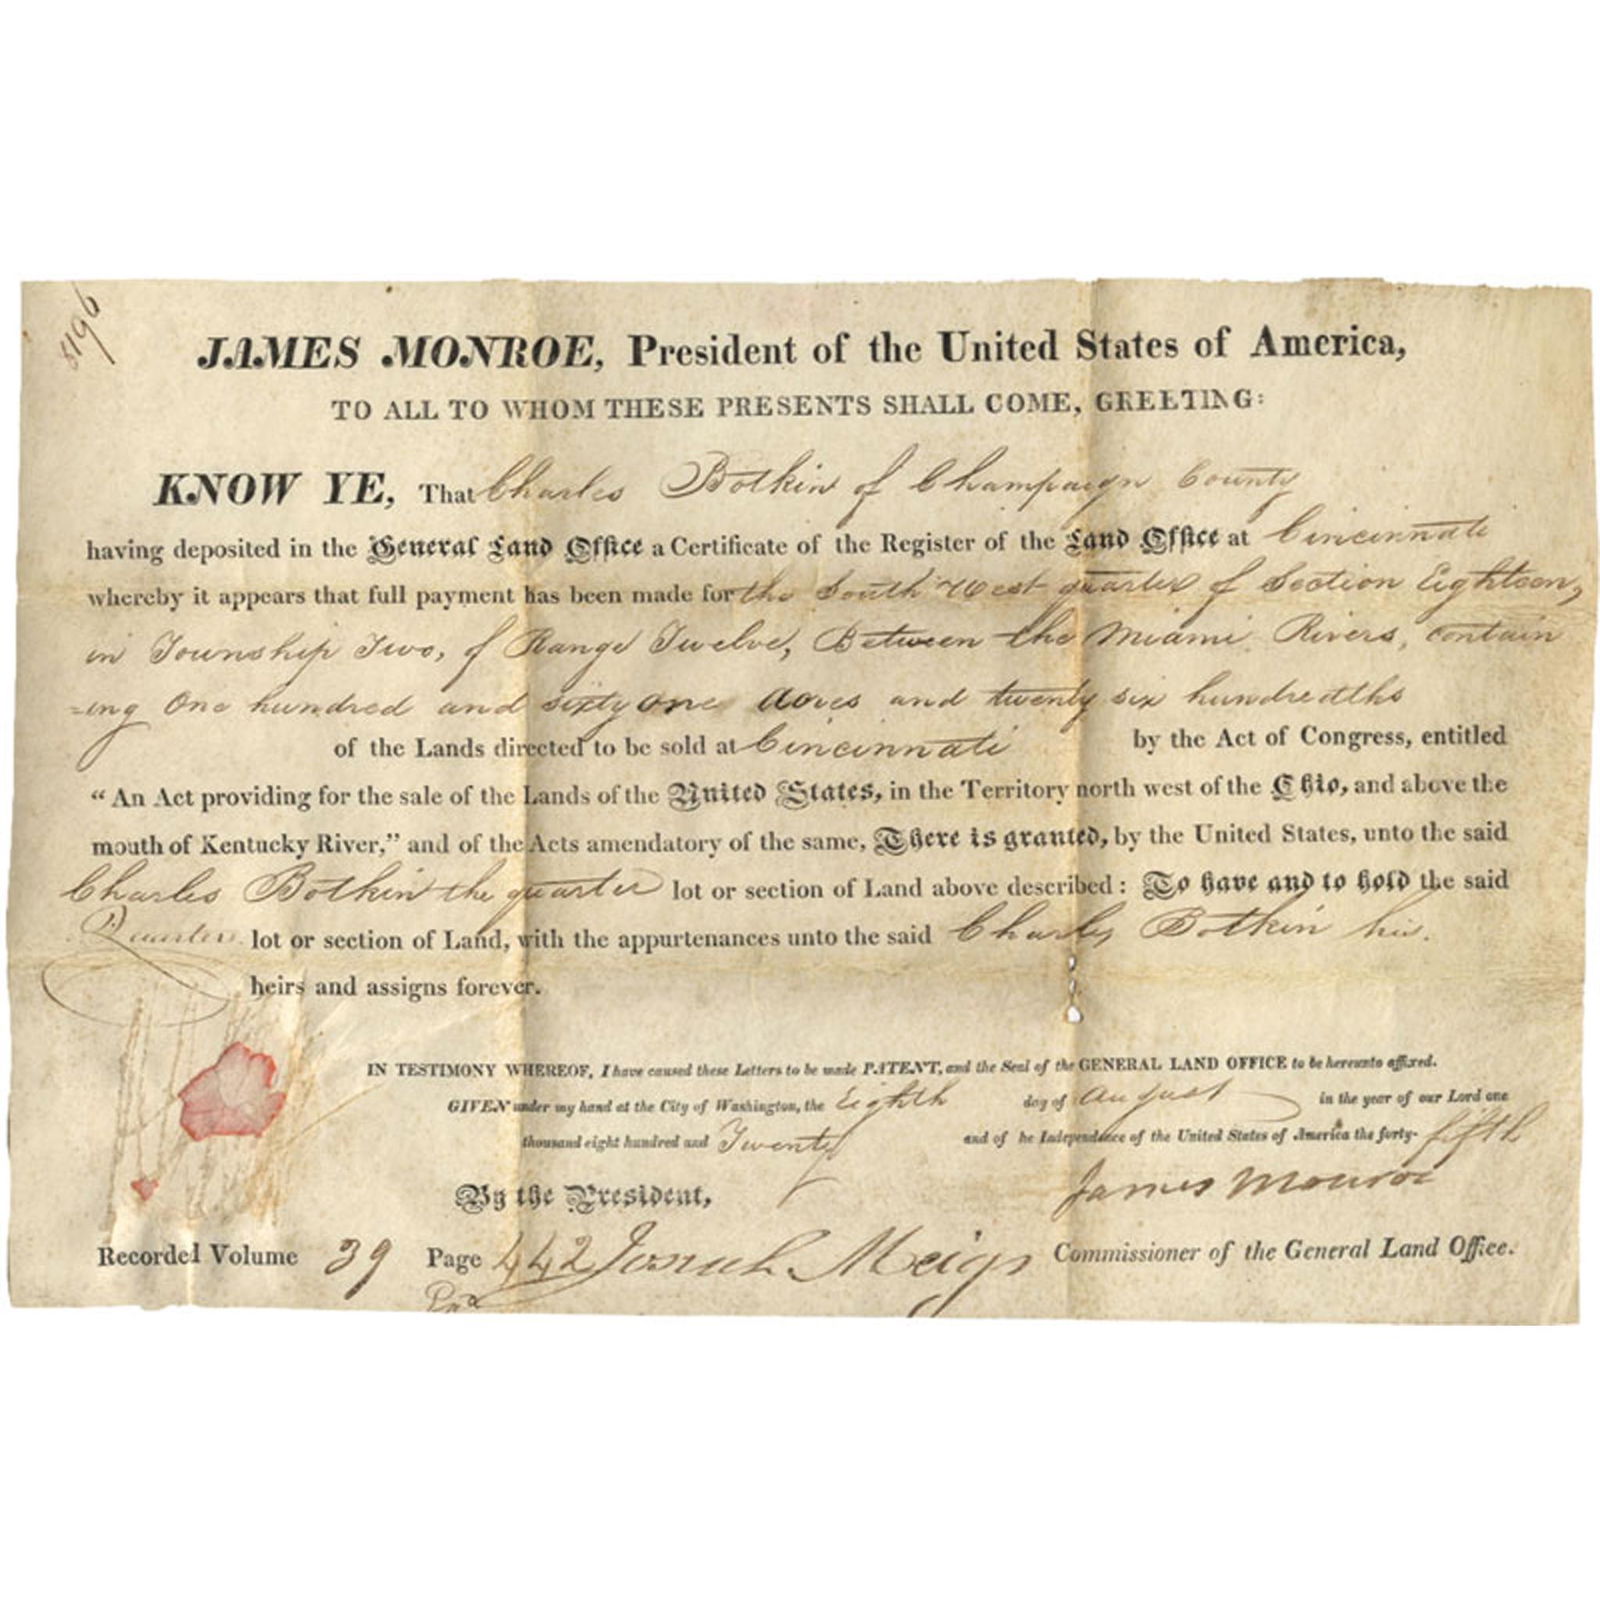 5196
JAMES MONROE, President of the United States of America,
TO ALL TO WHOM THESE PRESENTS SHALL COME, GREETING:
KNOW YE, That Charles Botkin of Champaign County
having deposited in the General Land Office a Certificate of the Register of the Land Office at Cincinnati
whereby it appears that full payment has been made for the South West quarter of Section Eighteen,
in Township Two, of Range Twelve, Between the Miami Rivers, contain
=ing One hundred and sixty one Acres and twenty six hundredths
of the Lands directed to be sold at Cincinnati by the Act of Congress, entitled
"An Act providing for the sale of the Lands of the United States, in the Territory north west of the Ohio, and above the
mouth of Kentucky River," and of the Acts amendatory of the same, There is granted, by the United States, unto the said
Charles Botkin the quarter lot or section of Land above described: To have and to hold the said
Quarter lot or section of Land, with the appurtenances unto the said Charles Botkin his
heirs and assigns forever.
IN TESTIMONY WHEREOF, I have caused these Letters to be made PATENT, and the Seal of the GENERAL LAND OFFICE to be hereunto affixed.
GIVEN under my hand at the City of Washington, the Eighth day of August in the year of our Lord one
thousand eight hundred and Twenty and of he Independence of the United States of America the forty-fifth
James Monroe
By the President,
Recorded Volume 39 Page 442 Josiah Meigs Commissioner of the General Land Office.